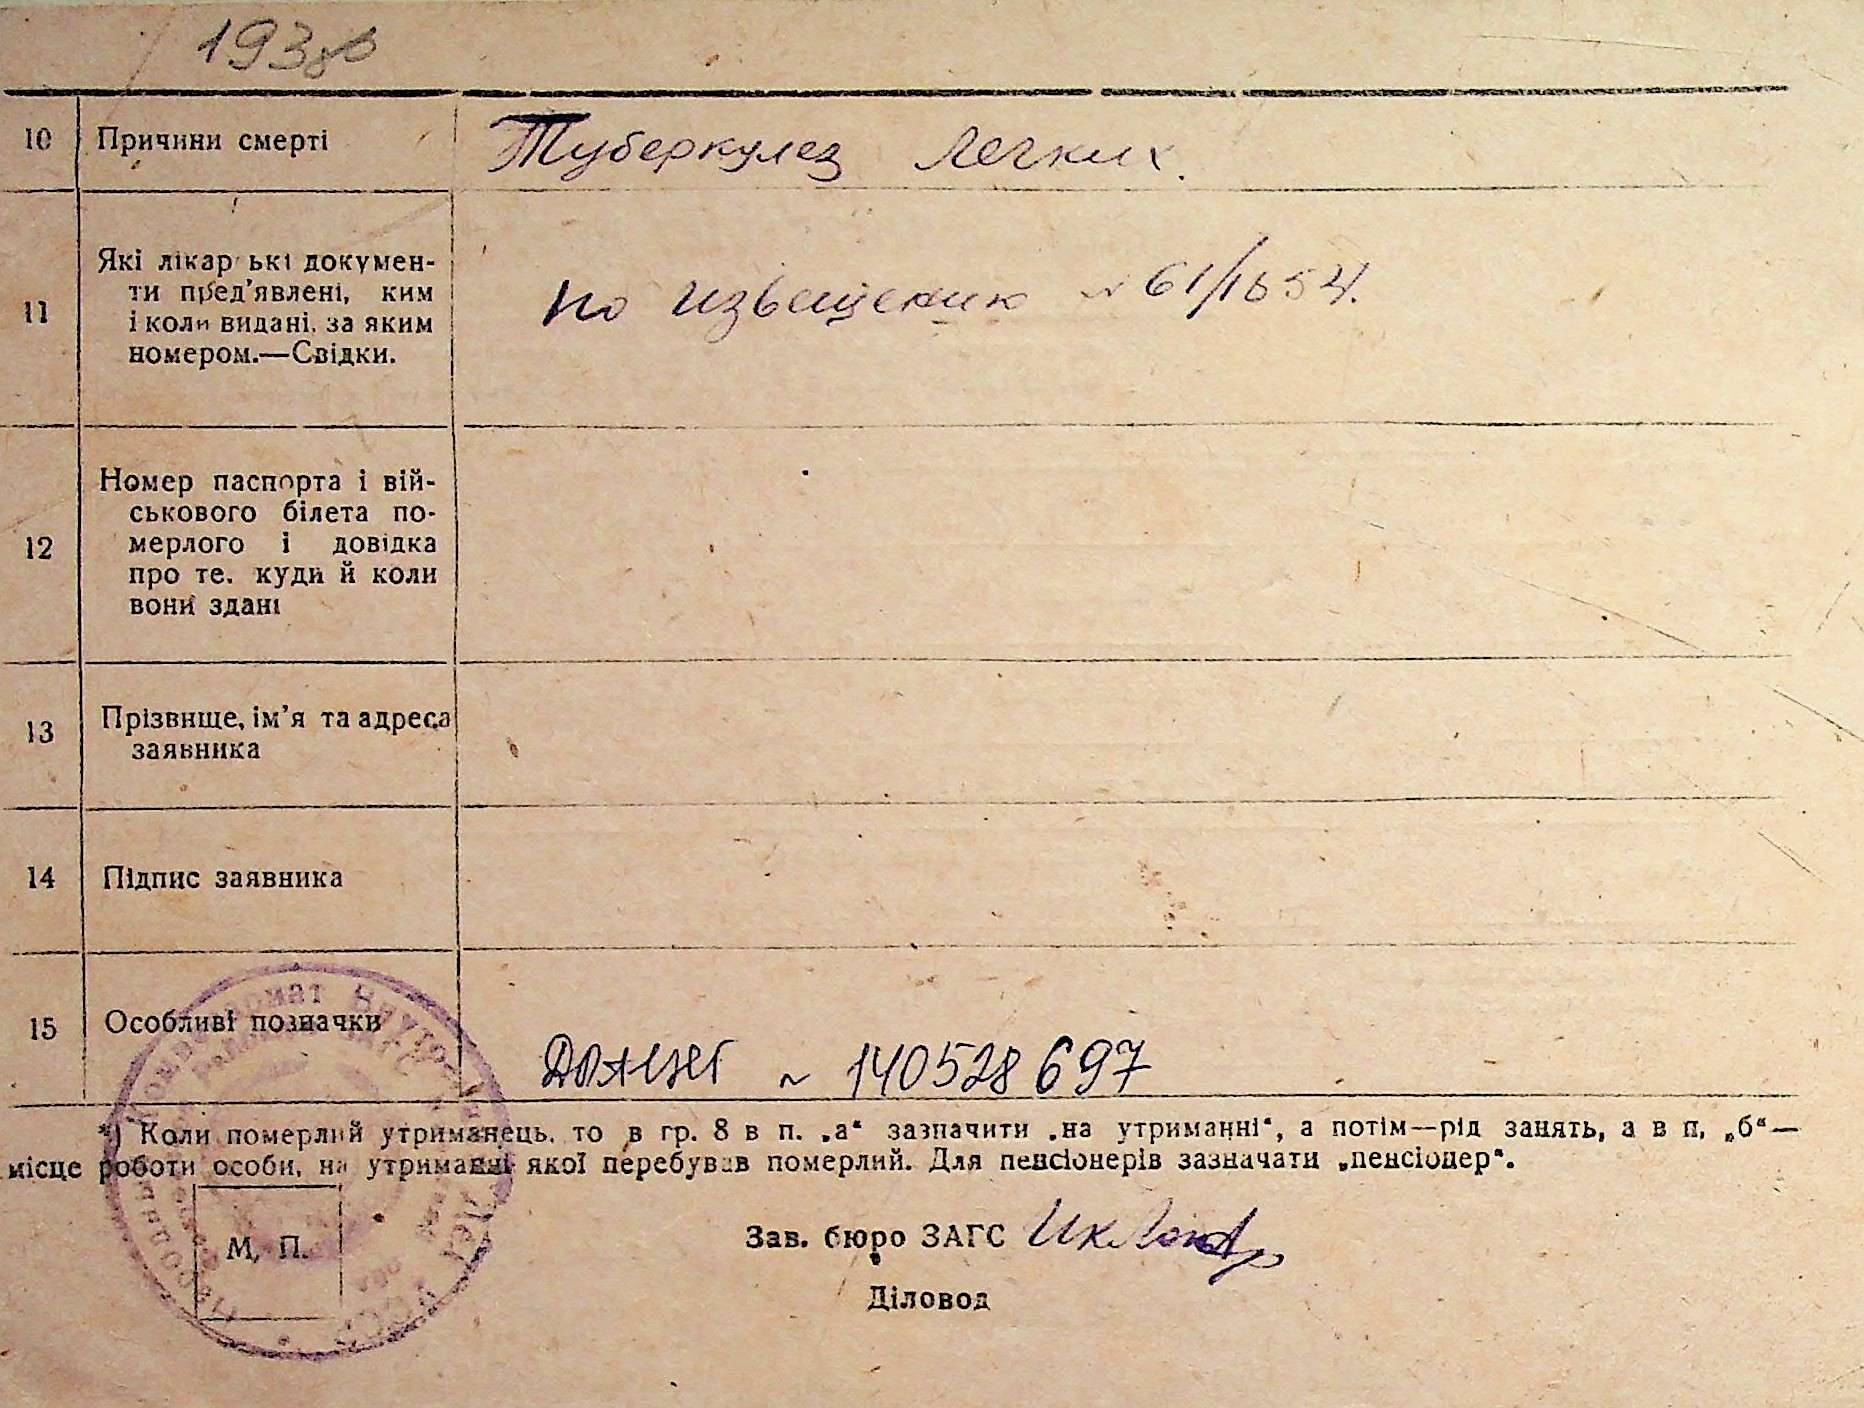 10 Причини смерті Туберкулез легких.
11 Які лікарські докумен-
ти пред’явлені, ким
і коли видані, за яким
номером.—Свідки.
по извещению № 61/1654.
12 Номер паспорта і вій-
ськового білета по-
мерлого і довідка
про те, куди й коли
вони здані
13 Прізвище, ім’я та адреса
заявника
14 Підпис заявника
15 Особливі позначки
№ 140528697
*) Коли померлий утриманець, то в гр. 8 в п. „а“ зазначити „на утриманні“, а потім—рід занять, а в п. „б“—
місце роботи особи, на утриманні якої перебував померлий. Для пенсіонерів зазначати „пенсіонер“.
М. П.
Зав. бюро ЗАГС
Діловод